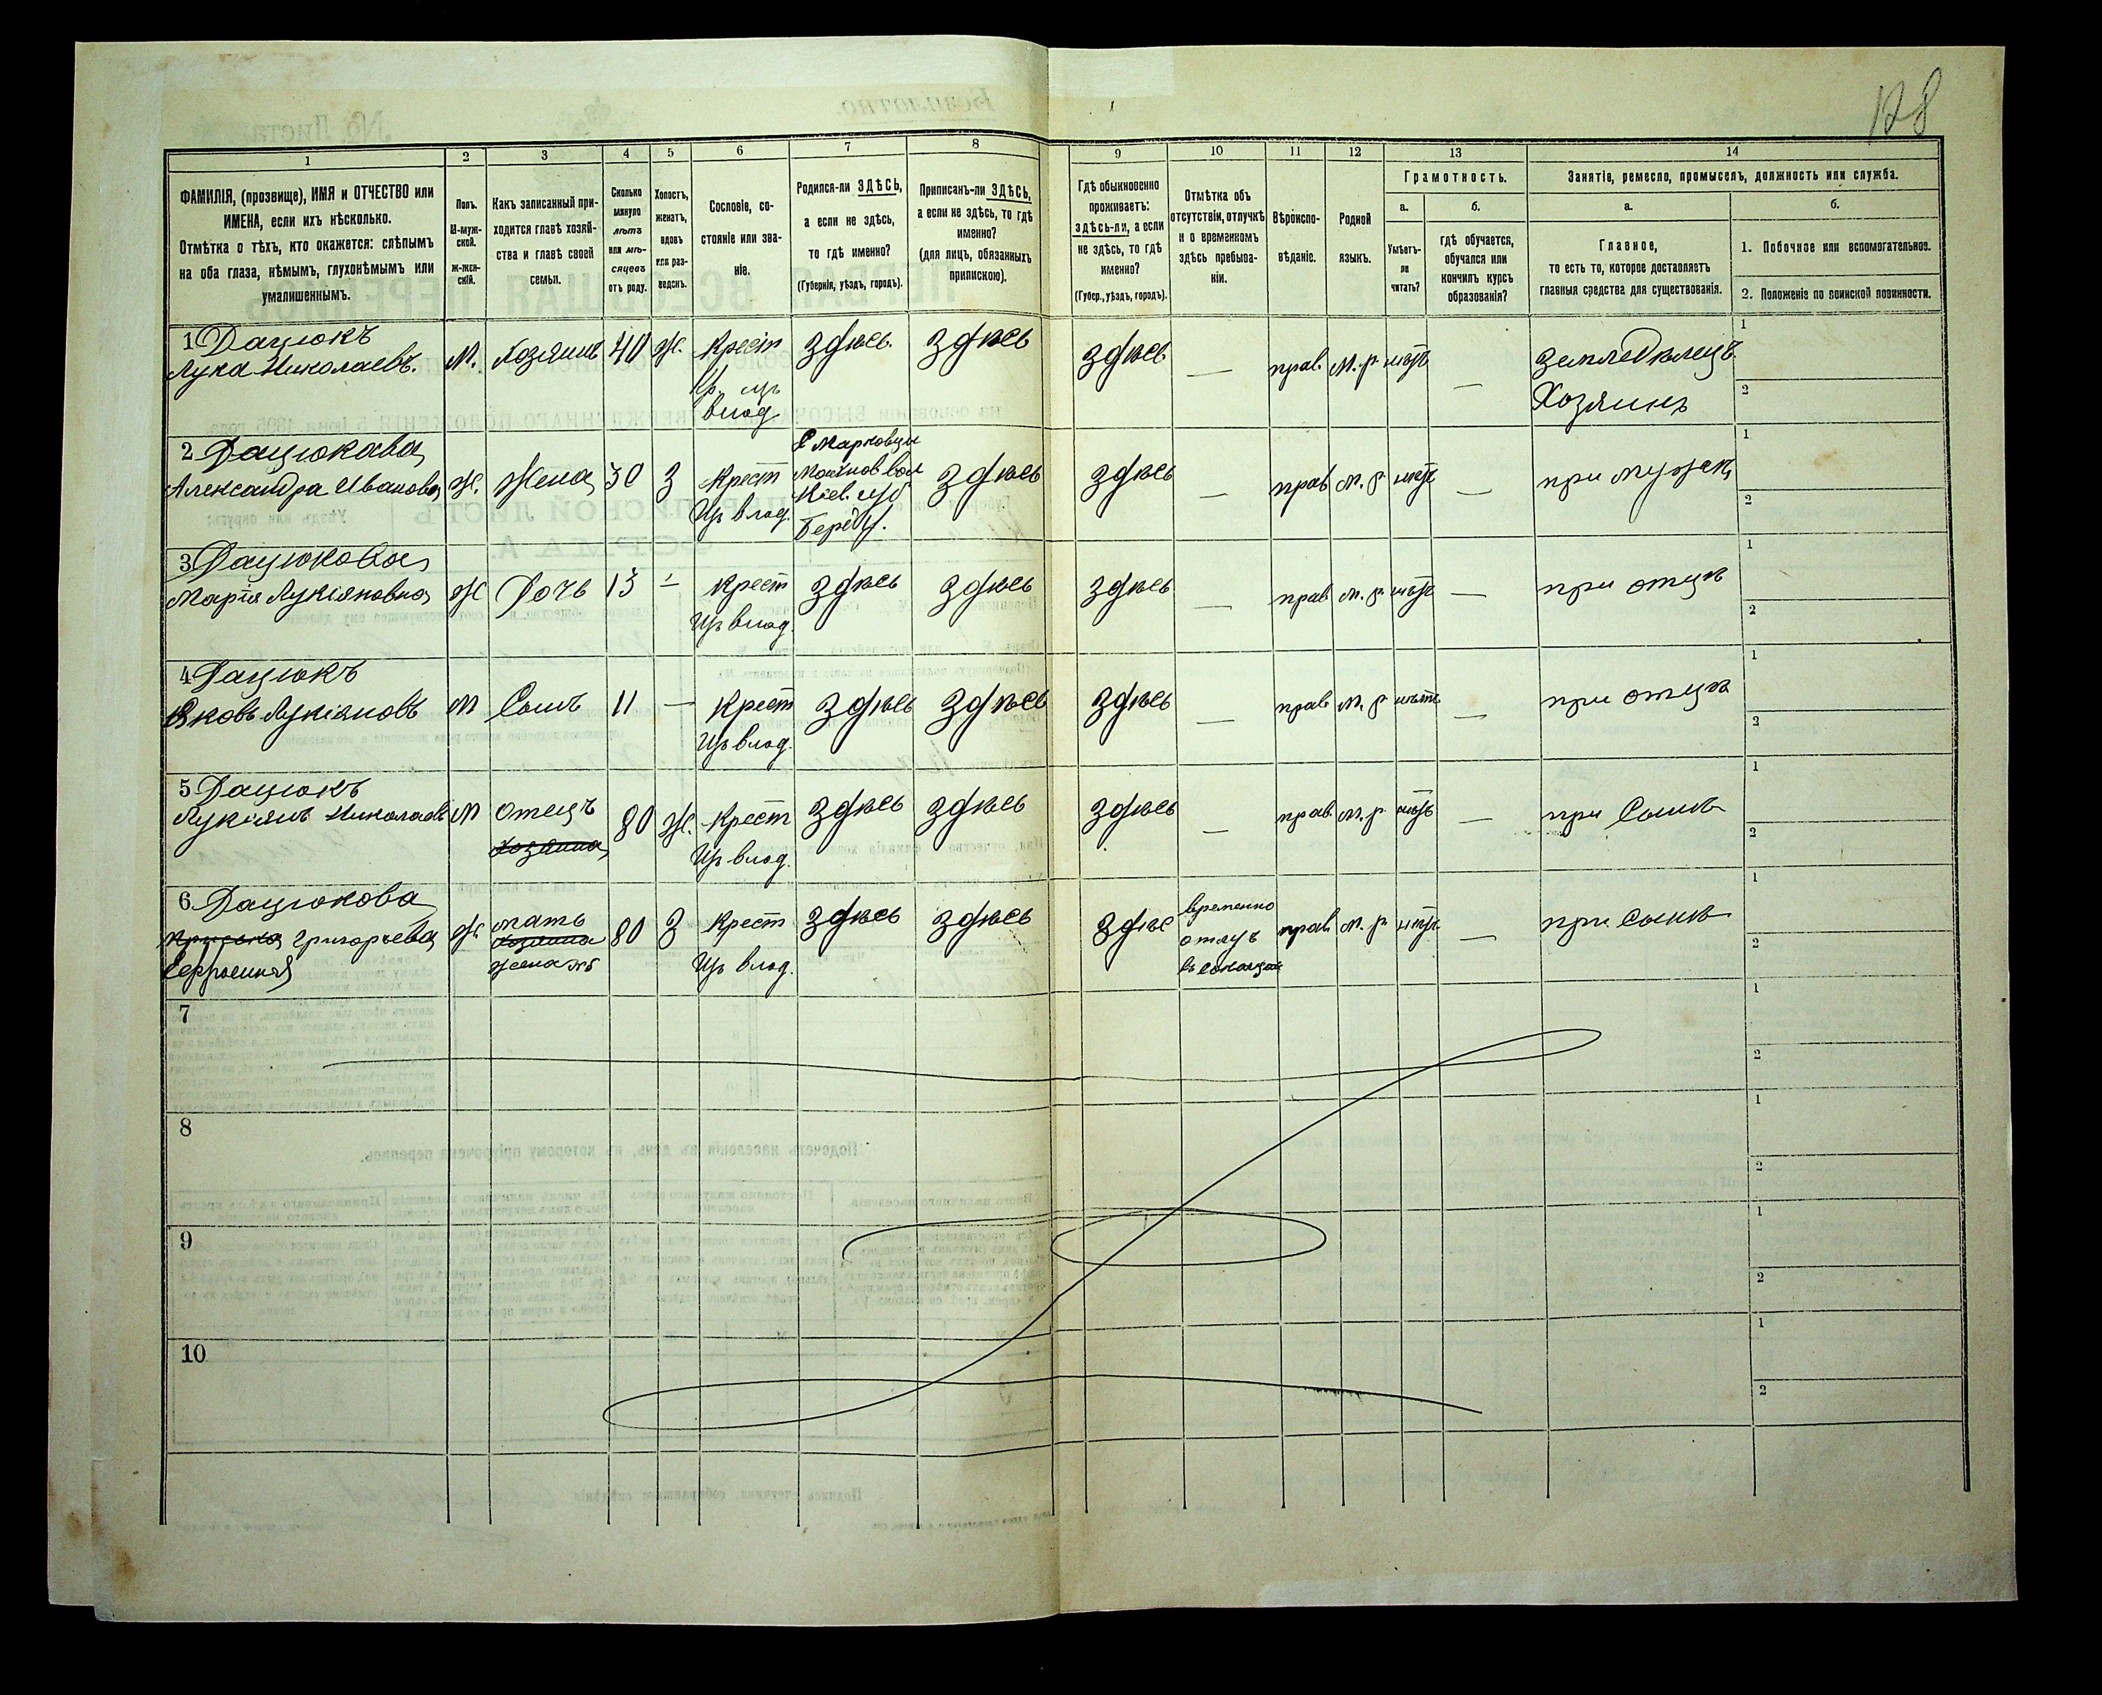 128
1 2 3 4 5 6 7 8 9 10 11 12 13 14
ФАМИЛІЯ, (прозвище), ИМЯ и ОТЧЕСТВО или
ИМЕНА, если ихъ нѣсколько.
Отмѣтка о тѣхъ, кто окажется: слѣпымъ
на оба глаза, нѣмымъ, глухонѣмымъ или
умалишеннымъ.
Полъ.
М-муж-
ской.
Ж-жен-
скій.
Какъ записанный при-
ходится главѣ хозяй-
ства и главѣ своей
семьи.
Сколько
минуло
лѣтъ
или мѣ-
сяцевъ
отъ роду.
Холостъ,
женатъ,
вдовъ
или раз-
веденъ.
Сословіе, со-
стояніе или зва-
ніе.
Родился-ли ЗДѢСЬ,
а если не здѣсь,
то гдѣ именно?
(Губернія, уѣздъ, городъ).
Приписанъ-ли ЗДѢСЬ,
а если не здѣсь, то гдѣ
именно?
(для лицъ, обязанныхъ
припискою).
Гдѣ обыкновенно
проживаетъ:
здѣсь-ли, а если
не здѣсь, то гдѣ
именно?
(Губер., уѣздъ, городъ).
Отмѣтка объ
отсутствіи, отлучкѣ
и о временномъ
здѣсь пребыва-
ніи.
Вѣроиспо-
вѣданіе.
Родной
языкъ.
Грамотность.
а.
Умѣетъ-
ли
читать?
б.
гдѣ обучается,
обучался или
кончилъ курсъ
образованія?
Занятіе, ремесло, промыселъ, должность или служба.
а.
Главное,
то есть то, которое доставляетъ
главныя средства для существованія.
б.
1. Побочное или вспомогательное.
2. Положеніе по воинской повинности.
1 Дацюкъ
Лука Николаевъ. М. Хозяинъ 40 Ж. Крест здѣсь. здѣсь здѣсь — прав. м. р нѣтъ — земледѣлецъ 1
влад. Хозяинъ 2
2 Дацюкава С Марковцы 1
Александра Иванова Ж. Жена 30 З Крест здѣсь здѣсь — прав м. р нѣтъ — при мужѣ
Кіев. губ
Из влад. Берд у. 2
3 Дацюкова 1
Марія Лукіяновна Ж Дочь 13 — Крест здѣсь здѣсь здѣсь — прав м. р. нѣтъ — при отцѣ
Из влад. 2
4 Дацюкъ 1
Яковъ Лукіяновъ М Сынъ 11 — Крест здѣсь здѣсь здѣсь — прав м. р нѣтъ — при отцѣ
Из влад. 2
5 Дацюкъ 1
Лукіянъ Николаевъ М отецъ 80 Ж. Крест здѣсь здѣсь здѣсь — прав. м. р нѣтъ — при Сынѣ
Хозяина Из влад. 2
6 Дацюкова временно 1
Григорьева Ж мать 80 З Крест здѣсь здѣсь здѣс прав м. р. нѣтъ — при Сынѣ
Хозяина
Из влад. 2
7 1
2
8 1
2
9 1
2
10 1
2